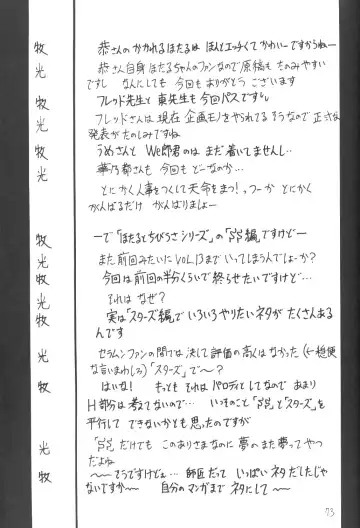 牧 恭さんのかかれるほたるは ほんとエッチくてかわいーですからねー
光 恭さん自身ほたるちゃんのファンなので原稿もたのみやすい
ですし なんにしても 今回もありがとうございます
牧 フレッド先生と 東先生も今回パスですし
光 フレッドさんは現在 企画モノをやられてるそうなので正式な
発表がたのしみですね
牧 うめさんと We郎君のは まだ着いてませんし…
光 華乃都さんも 今回も どーなのか…
とにかく人事をつくして天命をまつ!、つーか とにかく
がんばるだけ がんばりましょー
牧 ーで「ほたるとちびうさシリーズ」の「SS編」ですけどー
光 また前回みたいに VOL.13までいってしまうんでしょーか?
牧 今回は前回の半分くらいで終らせたいですけど…
光 それは なぜ?
牧 実は「スターズ編」でいろいろやりたいネタが たくさんある
んです
光 セラムンファンの間では 決して評価の高くはなかった(←穏便
な言いまわしろ)「スターズ」で〜?
牧 はいな! もっとも それはパロディとしてなので あまり
H部分は考えてないので… いっそのこと「SS」と「スターズ」を
平行して できないかとも思ったのですが
光 「SS」だけでも このありさまなのに 夢のまた夢ってやつ
だよね
牧 〜〜そうですけどぉ… 師匠だって いっぱいネタだしたじゃ
ないですか〜 自分のマンガまで ネタにして〜
73